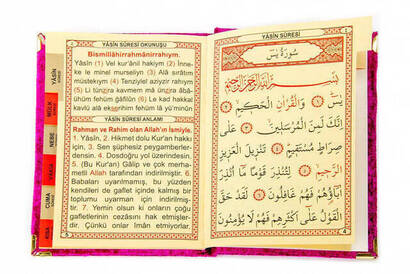 YÂSİN SÛRESİ OKUNUŞU
Bismillâhirrahmânirrahıym.
Yâsîn (1) Vel kur'ânil hakiym (2) İnne-
ke le minel murseliyn (3) Alâ sırâtım
müstekıym (4) Tenziylel aziyzir rahıym
(5) Li tünzira kavmem mâ ünzira âbâ-
ühüm fehüm gâfilûn (6) Le kad hakkal
kavlü alâ ekserihim fehüm lâ yü'minûn
YÂSİN SÛRESİ ANLAMI
Rahman ve Rahim olan Allah'ın İsmiyle.
1. Yâsîn, 2. Hikmet dolu Kur'an hakkı
için, 3. Sen şüphesiz peygamberler-
densin. 4. Dosdoğru yol üzerindesin.
5. (Bu Kur'an) Gâlip ve çok merha-
metli Allah tarafından indirilmiştir. 6.
Babaları uyarılmamış, bu yüzden
kendileri de gaflet içinde kalmış bir
toplumu uyarman için indirilmiş-
tir. 7. Yemin olsun ki onların çoğu
gafletlerinin cezasını hak etmişler-
dir. Çünkü onlar îman etmiyorlar.
YÂSİN
MÜLK
NEBE
CUMA
KISA
YÂSİN SÛRESİ
سُورَةُ يٰسٓ
بِسْمِ اللّٰهِ الرَّحْمٰنِ الرَّحِيمِ
يٰسٓ ﴿١﴾ وَالْقُرْاٰنِ الْحَكِيمِ ﴿٢﴾
اِنَّكَ لَمِنَ الْمُرْسَلِينَ ﴿٣﴾ عَلٰى
صِرَاطٍ مُسْتَقِيمٍ ﴿٤﴾ تَنْزِيلَ الْعَزِيزِ
الرَّحِيمِ ﴿٥﴾ لِتُنْذِرَ قَوْمًا مَٓا اُنْذِرَ
اٰبَٓاؤُهُمْ فَهُمْ غَافِلُونَ ﴿٦﴾ لَقَدْ حَقَّ
الْقَوْلُ عَلٰٓى اَكْثَرِهِمْ فَهُمْ لَا يُؤْمِنُونَ
4